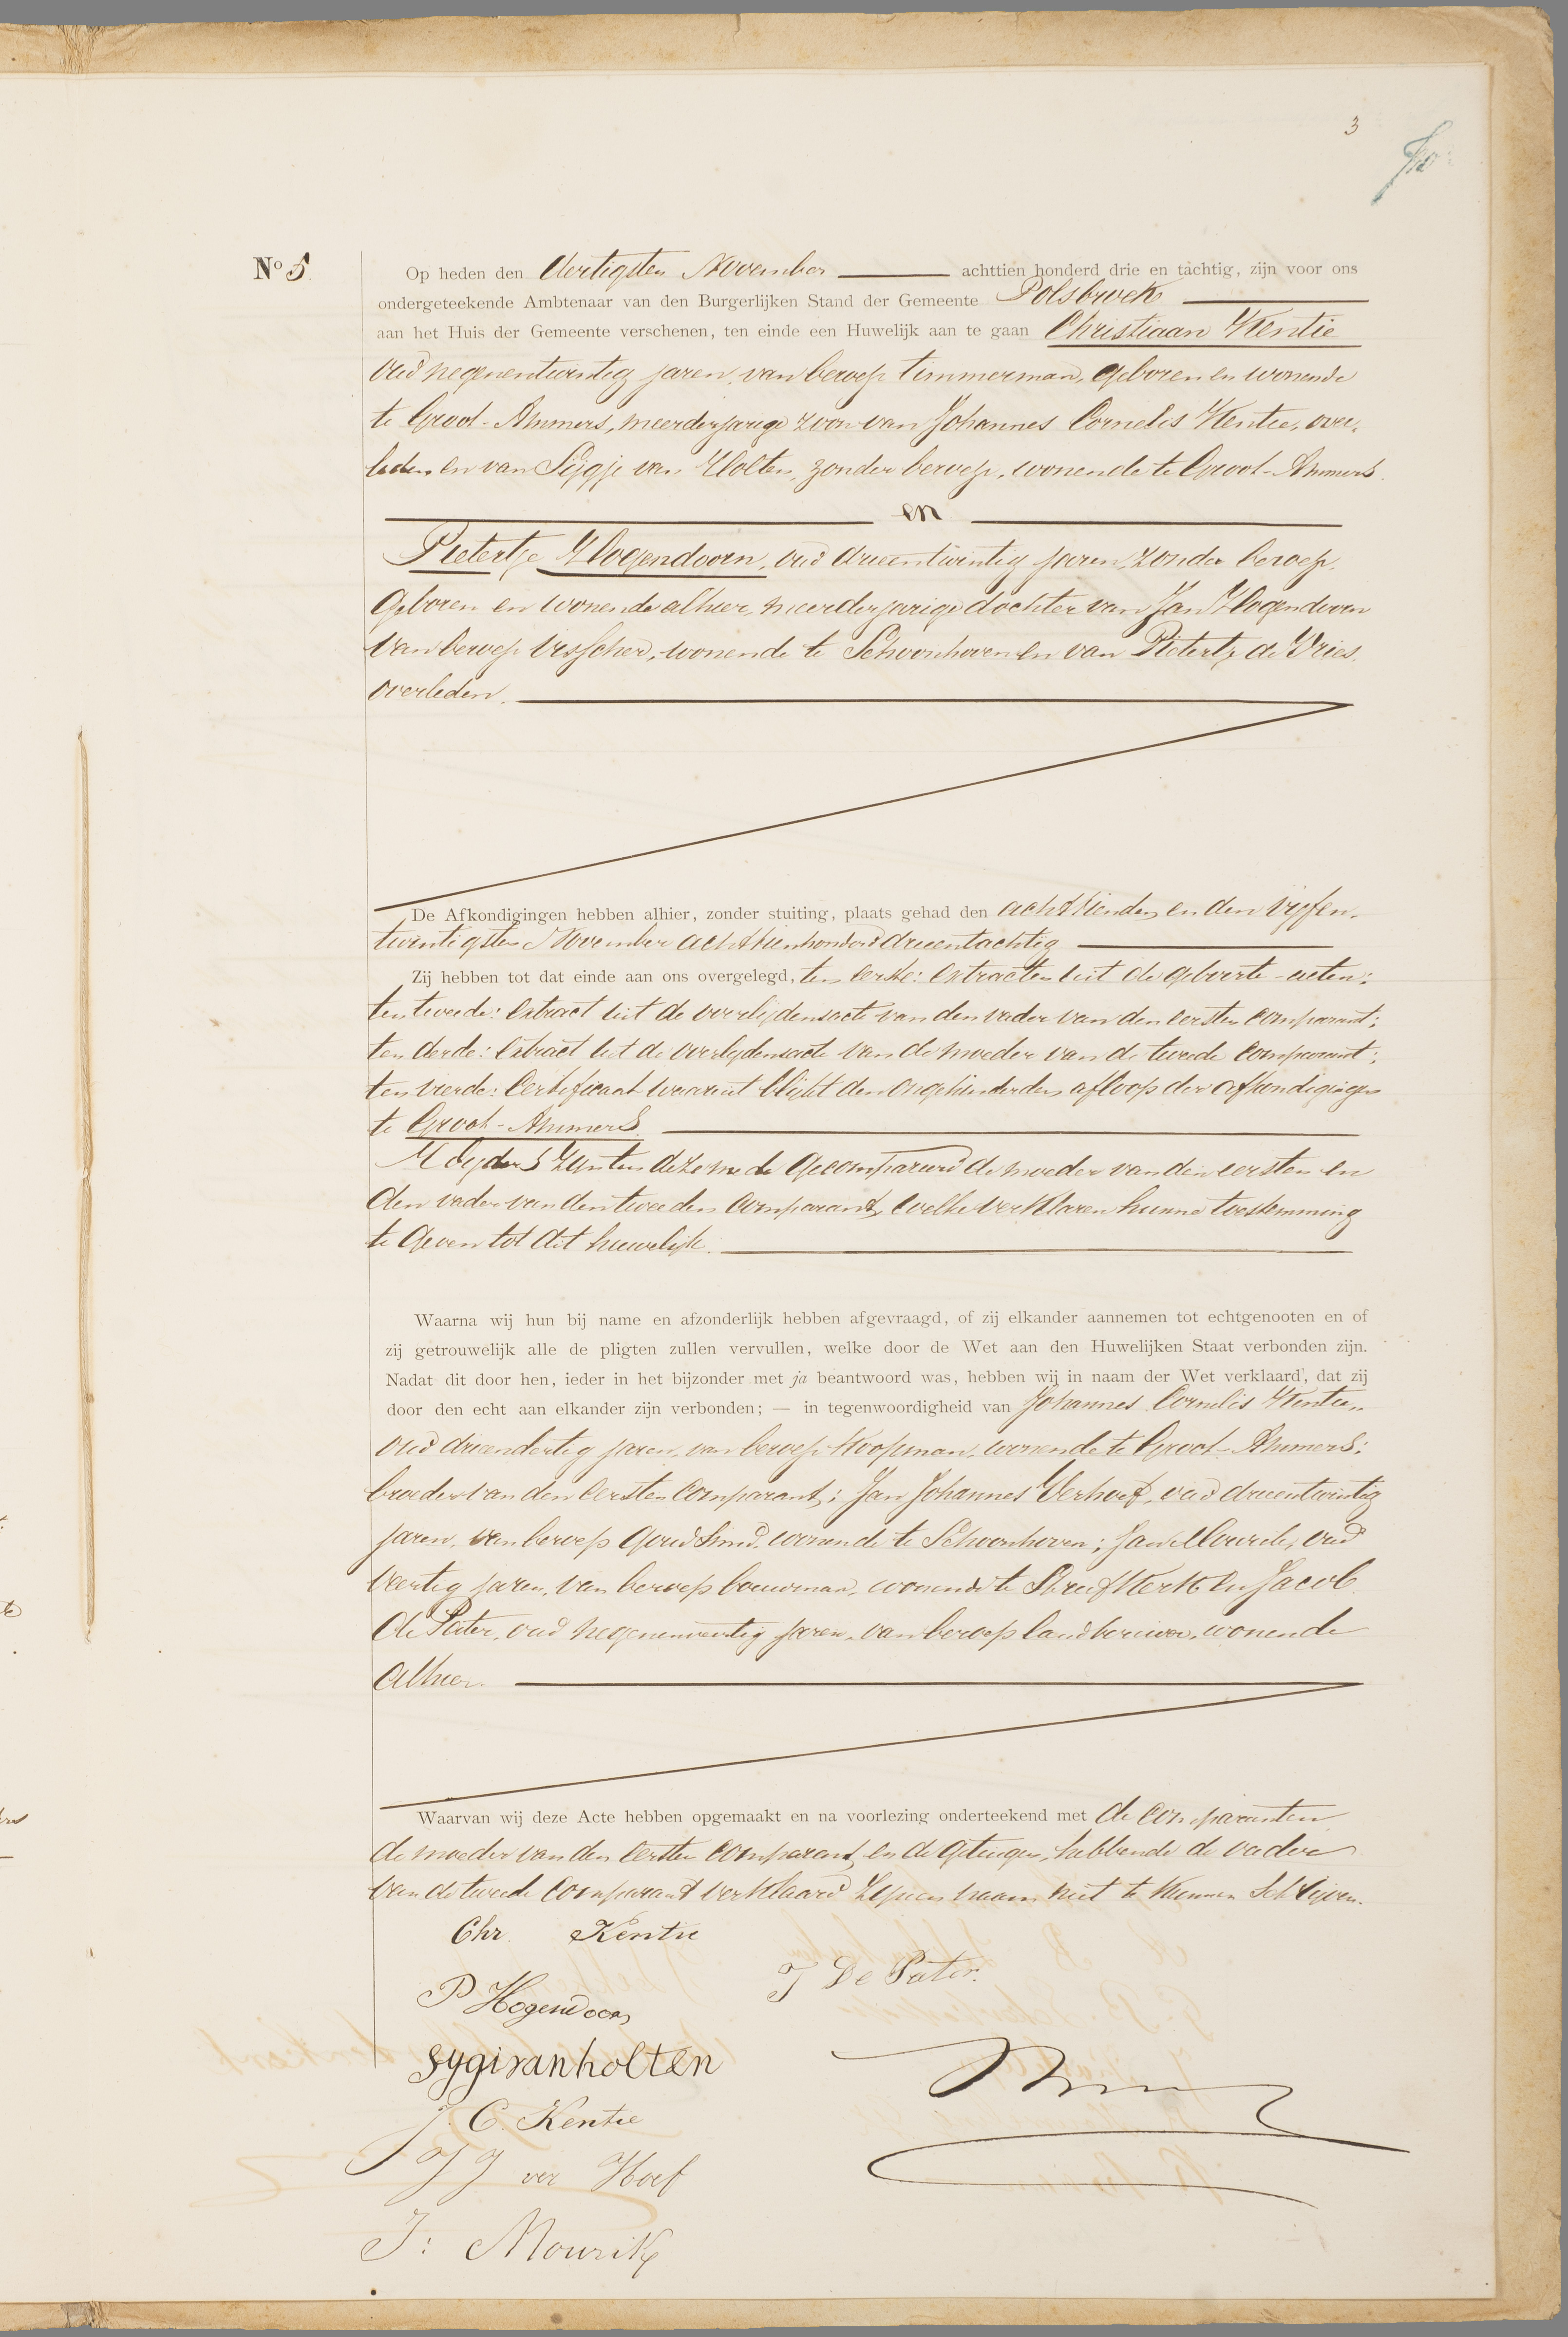 3
No 5.
Op heden den dertigsten November achttien honderd drie en tachtig, zijn voor ons
ondergeteekende Ambtenaar van den Burgerlijken Stand der Gemeente Polsbroek
aan het Huis der Gemeente verschenen, ten einde een Huwelijk aan te gaan Christiaan Kentie
oud negenentwintig jaren, van beroep timmerman, geboren en wonende
te Groot-Ammers, meerderjarige zoon van Johannes Cornelis Kentie, over-
leden en van Sijgje van Holten, zonder beroep, wonende te Groot-Ammers.
en
Pietertje Hogendoorn, oud drieentwintig jaren, zonder beroep,
geboren en wonende alhier, meerderjarige dochter van Jan Hogendoorn
van beroep visscher, wonende te Schoonhoven en van Pietertje de Vries,
overleden.
De Afkondigingen hebben alhier, zonder stuiting, plaats gehad den achttienden en den vijfen-
twintigsten November achttienhonderd drieentachtig
Zij hebben tot dat einde aan ons overgelegd, ten eerste: extracten uit de geboorte-acten;
ten tweede: extract uit de overlijdensacte van den vader van den eersten comparant;
ten derde: extract uit de overlijdensacte van de moeder van de tweede comparant;
ten vierde: certificaat waaruit blijkt den ongehinderden afloop der afkondigingen
te Groot-Ammers.
zijnde mede gecompareerd de moeder van den eersten en
den vader van den tweeden comparant, welke verklaren hunne toestemming
te geven tot dit huwelijk.
Waarna wij hun bij name en afzonderlijk hebben afgevraagd, of zij elkander aannemen tot echtgenooten en of
zij getrouwelijk alle de pligten zullen vervullen, welke door de Wet aan den Huwelijken Staat verbonden zijn.
Nadat dit door hen, ieder in het bijzonder met ja beantwoord was, hebben wij in naam der Wet verklaard, dat zij
door den echt aan elkander zijn verbonden; — in tegenwoordigheid van Johannes Cornelis Kentie,
oud drieendertig jaren, van beroep koopman, wonende te Groot-Ammers;
broeder van den eersten comparant; Jan Johannes Verhoef, oud drieentwintig
jaren, van beroep goudsmid, wonende te Schoonhoven; Jan Mourik, oud
veertig jaren, van beroep bouwman, wonende te Streefkerk en Jacob
de Pater, oud negenenveertig jaren, van beroep landbouwer, wonende
alhier.
Waarvan wij deze Acte hebben opgemaakt en na voorlezing onderteekend met de comparanten
de moeder van den eersten comparant en de getuigen, hebbende de vader
van de tweede comparant verklaard zijnen naam niet te kunnen schrijven.
Chr. Kentie
J De Pater.
P Hogendoorn
sygivanholten
J. C. Kentie
J J ver Hoef
J: Mourik